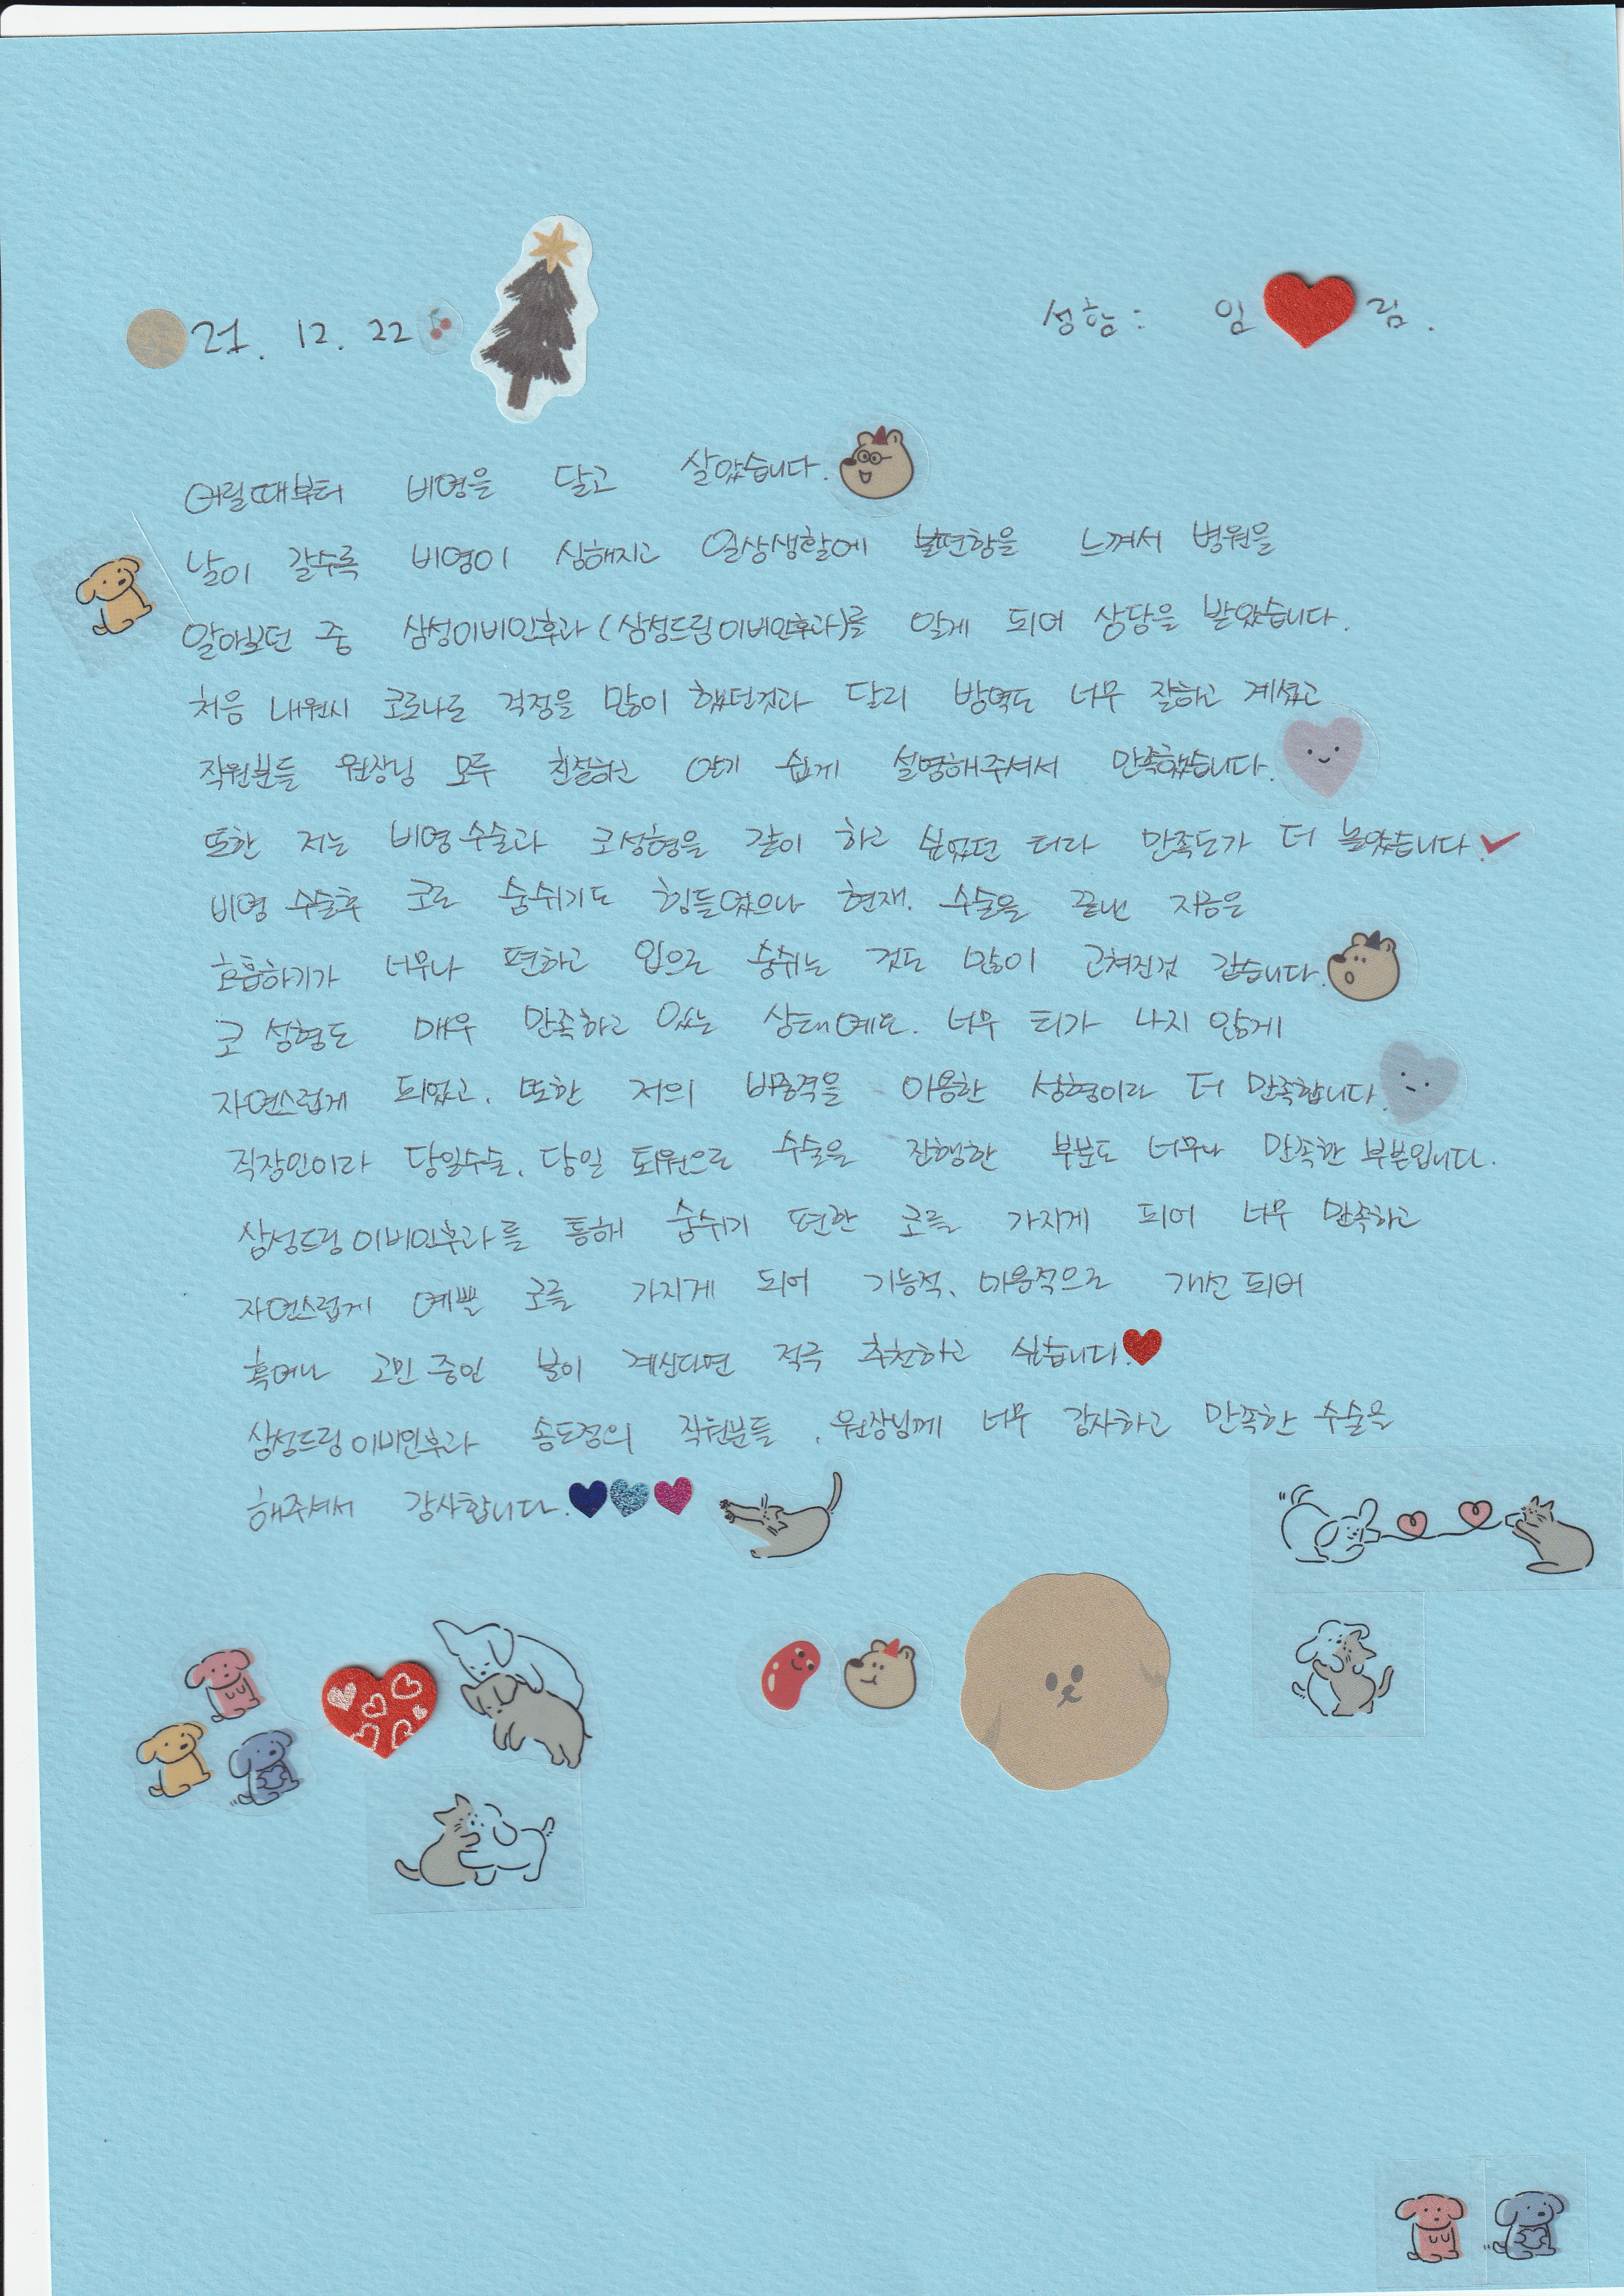 21. 12. 22
성함: 임 림.
어릴때부터 비염을 달고 살았습니다.
날이 갈수록 비염이 심해지고 일상생활에 불편함을 느껴서 병원을
알아보던 중 삼성이비인후과(삼성드림이비인후과)를 알게 되어 상담을 받았습니다.
처음 내원시 코로나로 걱정을 많이 했던것과 달리 방역도 너무 잘하고 계셨고
직원분들 원장님 모두 친절하고 알기 쉽게 설명해주셔서 만족했습니다.
또한 저는 비염수술과 코성형을 같이 하고 싶었던 터라 만족도가 더 높았습니다.
비염 수술후 코로 숨쉬기도 힘들었으나 현재. 수술을 끝낸 지금은
호흡하기가 너무나 편하고 입으로 숨쉬는 것도 많이 고쳐진것 같습니다.
코 성형도 매우 만족하고 있는 상태예요. 너무 티가 나지 않게
자연스럽게 되었고. 또한 저의 비중격을 이용한 성형이라 더 만족합니다.
직장인이라 당일수술, 당일 퇴원으로 수술을 진행한 부분도 너무나 만족한 부분입니다.
삼성드림이비인후과를 통해 숨쉬기 편한 코를 가지게 되어 너무 만족하고
자연스럽게 예쁜 코를 가지게 되어 기능적, 미용적으로 개선되어
혹여나 고민 중인 분이 계신다면 적극 추천하고 싶습니다.
삼성드림이비인후과 송도점의 직원분들, 원장님께 너무 감사하고 만족한 수술을
해주셔서 감사합니다.